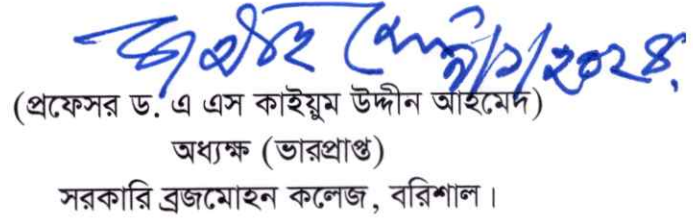 ২০২৪
(প্রফেসর ড. এ এস কাইয়ুম উদ্দীন আহমেদ)
অধ্যক্ষ (ভারপ্রাপ্ত)
সরকারি ব্রজমোহন কলেজ, বরিশাল।